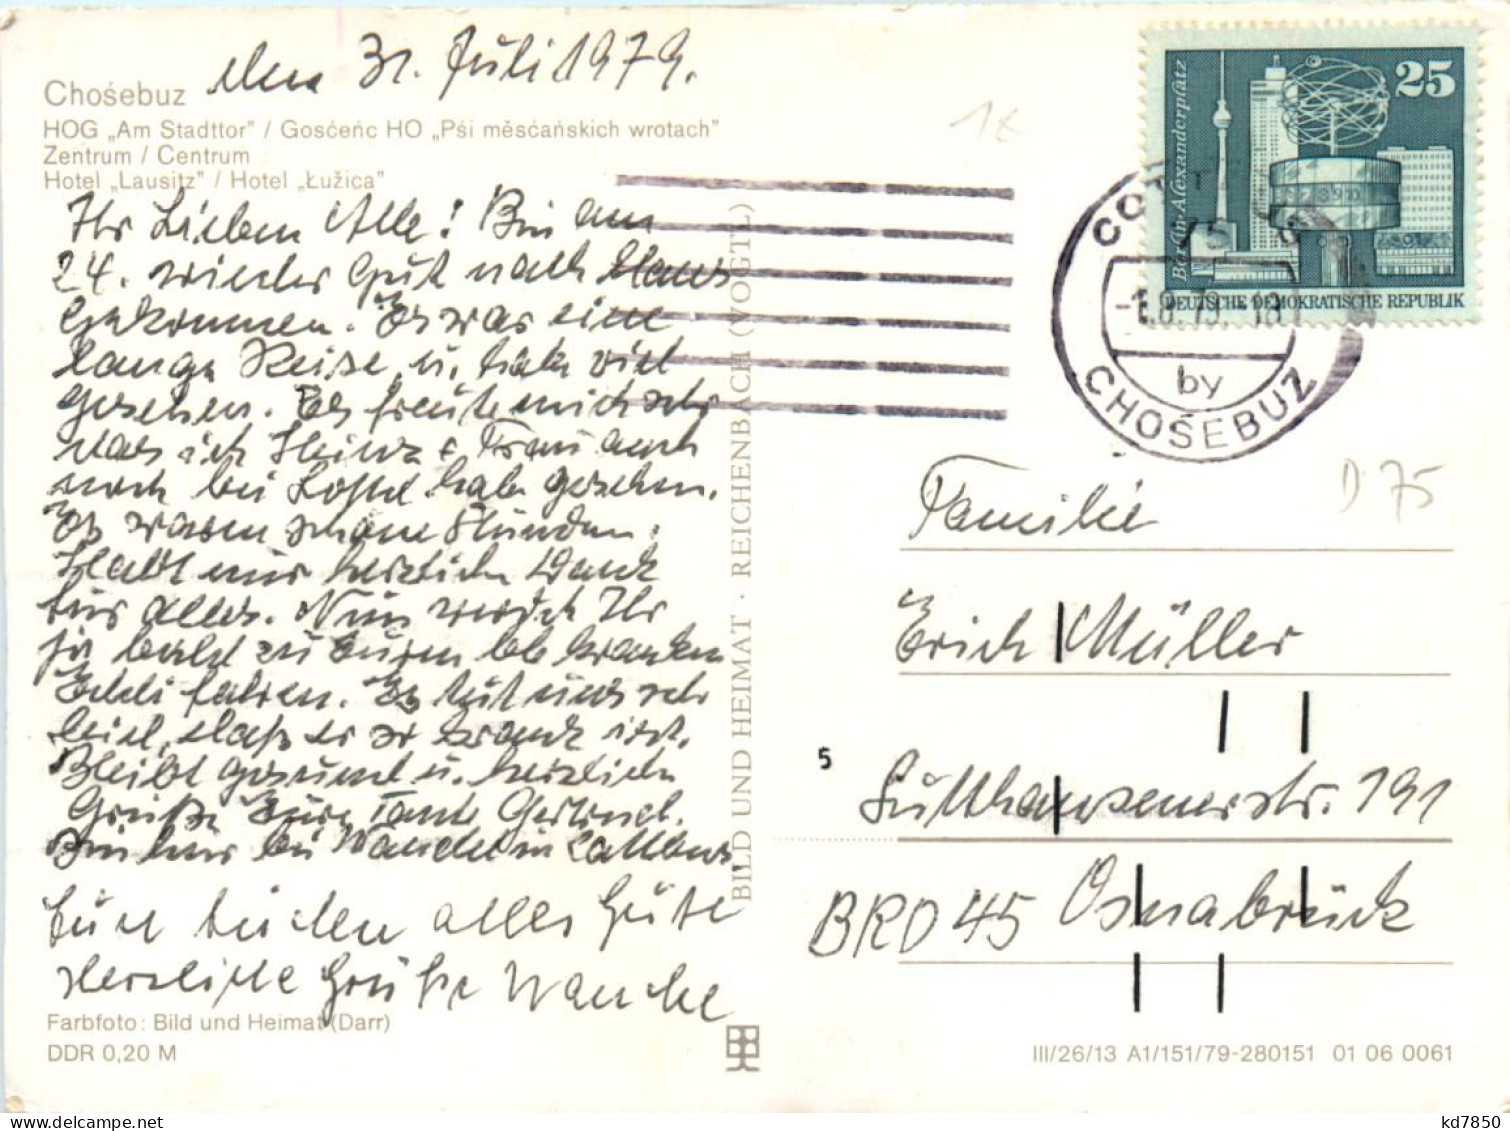 den 31. Juli 1979.
Chośebuz
HOG „Am Stadttor" / Gosćeńc HO „Pśi měsćańskich wrotach"
Zentrum / Centrum
Hotel „Lausitz" / Hotel „Łužica"
Ihr Lieben Alle! Bin am
24. wieder Gut nach Haus
Gekommen. Es war eine
lange Reise u. habe viel
gesehen. Es freute mich sehr
das ich Heinz & Frau auch
noch bei habe gesehen.
Es waren schöne Stunden.
Habt mir herzlich Dank
für alles. Nun werdet Ihr
ja bald zu Euren lb kranken
Eddi fahren. Es tut uns sehr
leid, daß er so krank ist.
Bleibt gesund u. herzliche
Grüße Eure Tante Gertrud.
Bin hier bei in Cottbus.
alles Gute
Herzliche Grüße
Farbfoto: Bild und Heimat (Darr)
DDR 0,20 M
BILD UND HEIMAT · REICHENBACH (VOGTL)
1x
25
Berlin-Alexanderplatz
DEUTSCHE DEMOKRATISCHE REPUBLIK
COTTBUS
75
-1.8.79.-18
by
CHOŚEBUZ
D 75
Familie
Erich Müller
5
191
BRD 45 Osnabrück
III/26/13 A1/151/79-280151 01 06 0061
kd7850